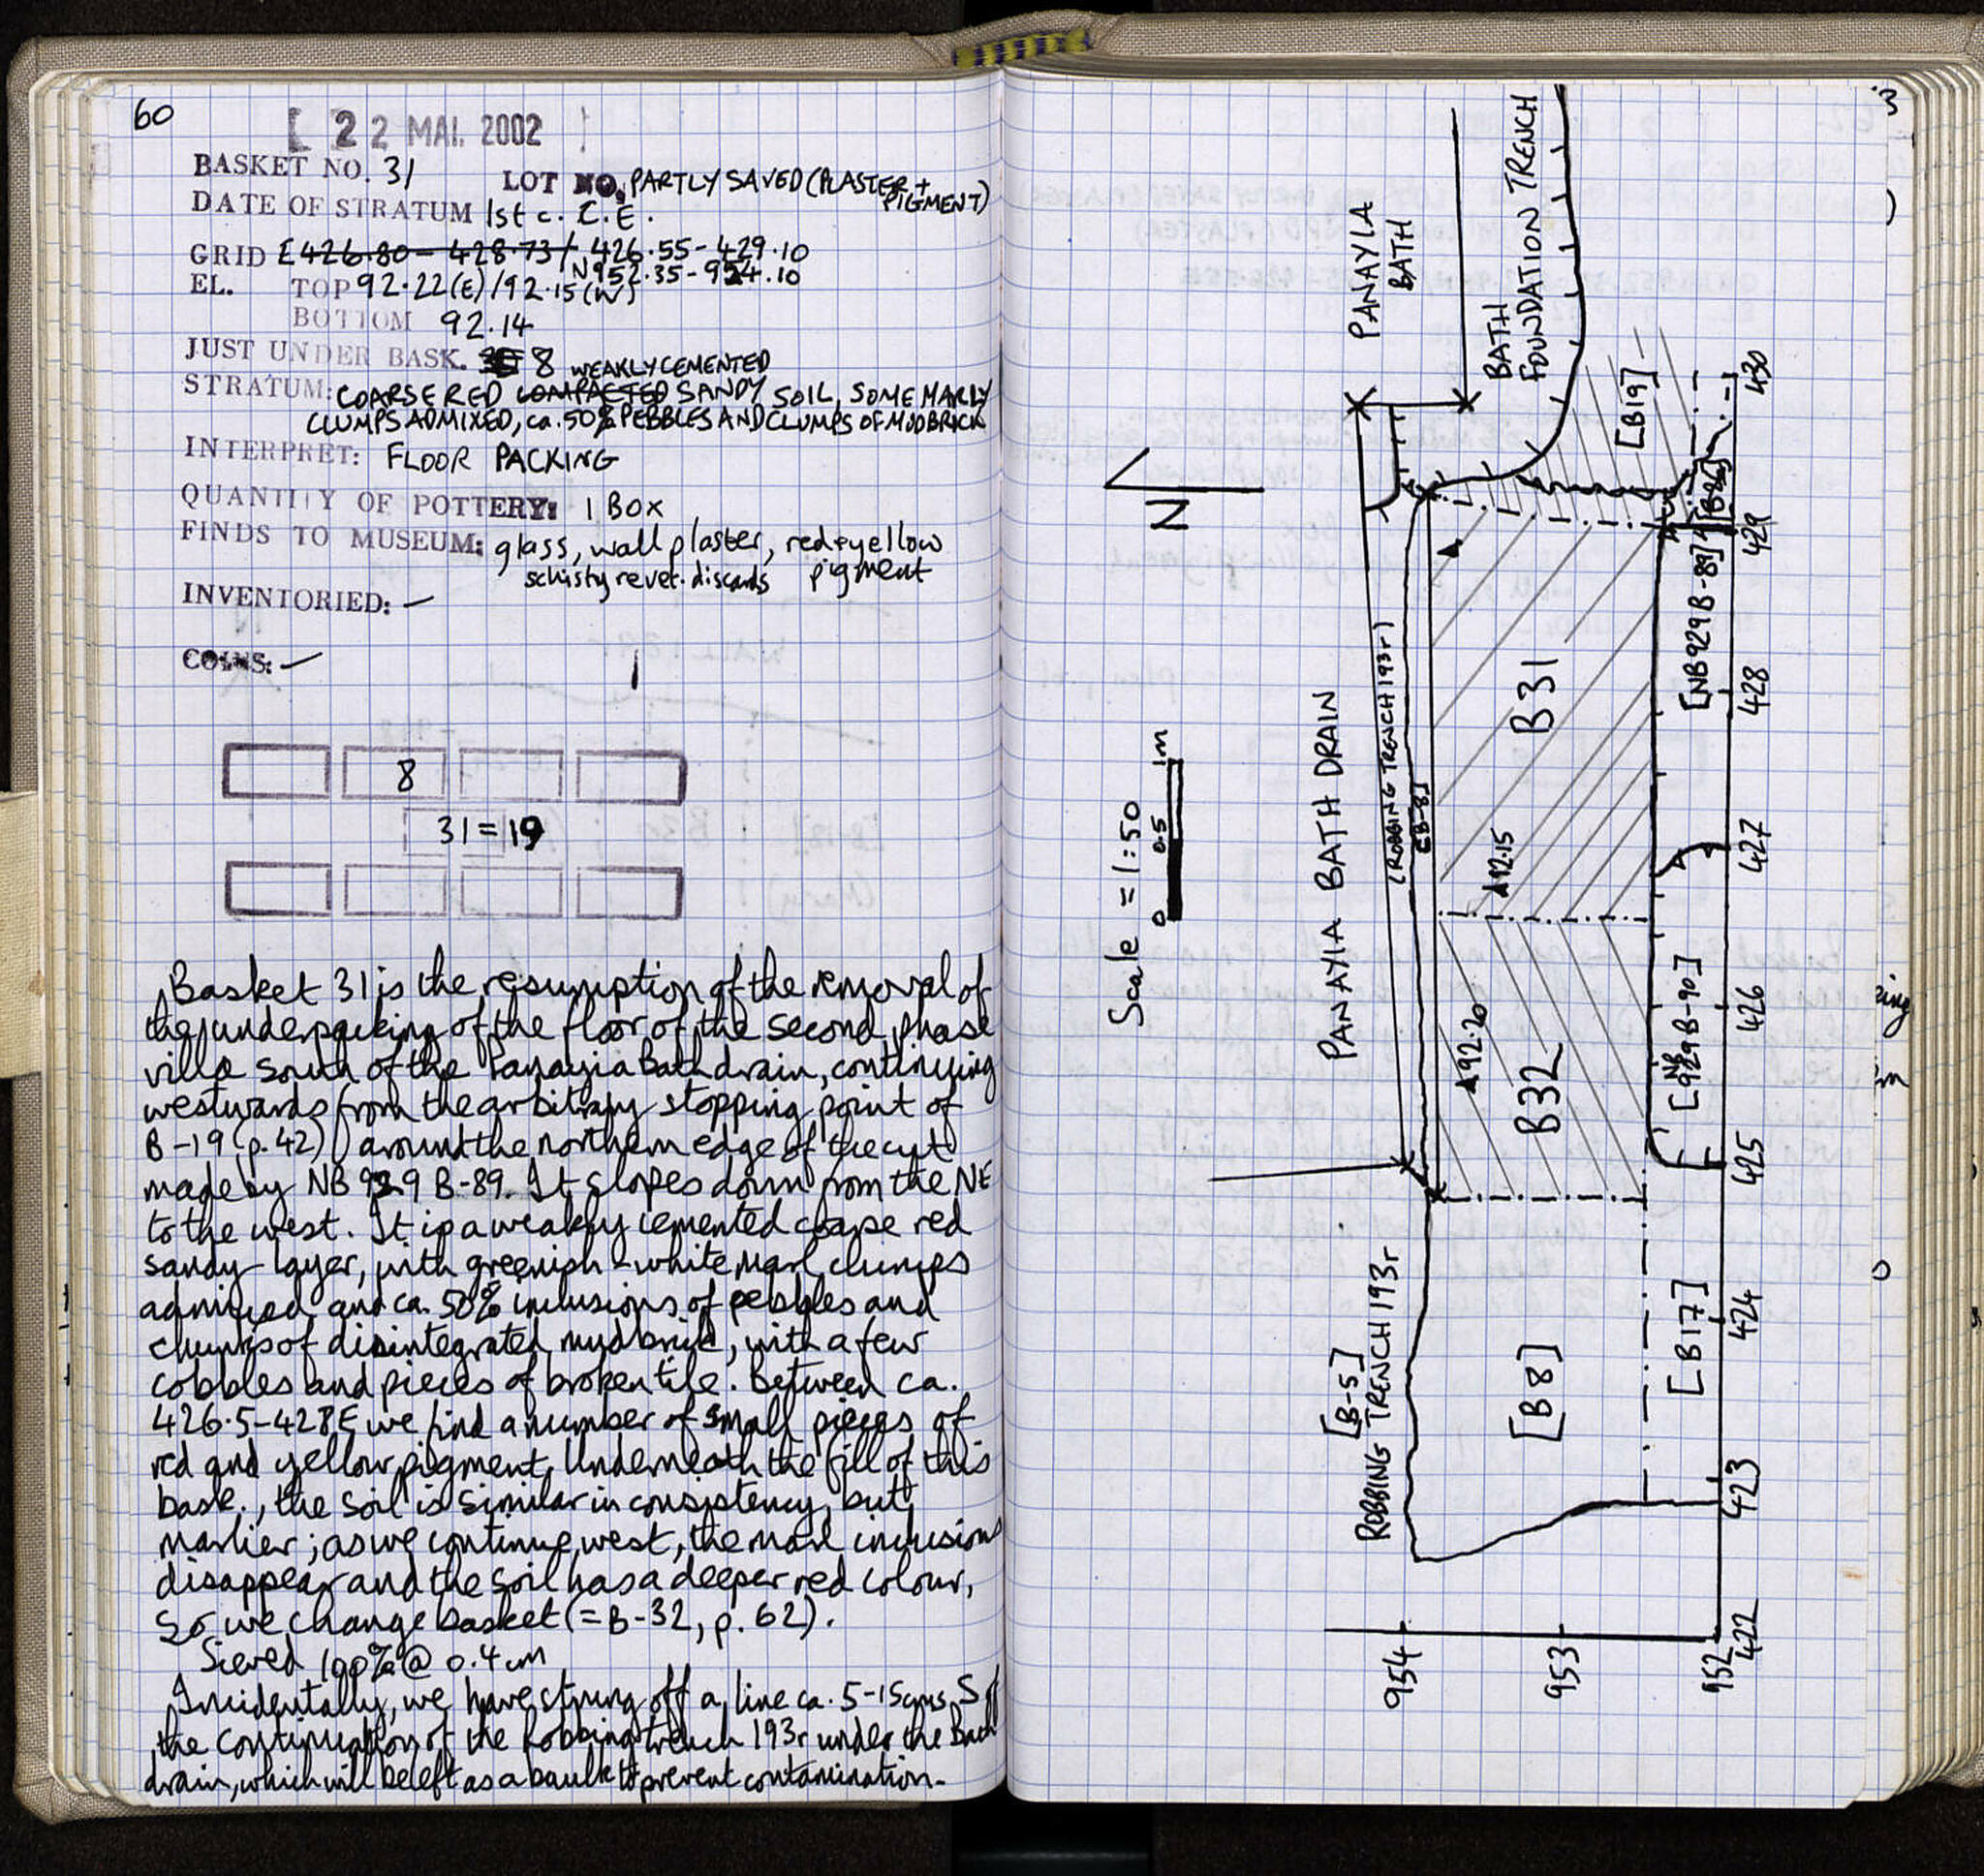 60
22 MAI. 2002
BASKET NO. 31 LOT NO. PARTLY SAVED (PLASTER +
PIGMENT)
DATE OF STRATUM 1st c. C.E.
GRID E426.80 - 428.73/ 426.55-429.10
N952.35-954.10
EL. TOP 92.22(E)/92.15(W)
BOTTOM 92.14
JUST UNDER BASK. 8 WEAKLY CEMENTED
STRATUM: COARSE RED COMPACTED SANDY SOIL, SOME MARLY
CLUMPS ADMIXED, ca. 50% PEBBLES AND CLUMPS OF MUDBRICK
INTERPRET: FLOOR PACKING
QUANTITY OF POTTERY: 1 BOX
FINDS TO MUSEUM: glass, wall plaster, red+yellow
schisty revet. discards pigment
INVENTORIED: —
COINS: —
8
31=19
Basket 31 is the resumption of the removal of
the underpacking of the floor of the second phase
villa south of the Panayia Bath drain, continuing
westwards from the arbitrary stopping point of
B-19 (p. 42) around the northern edge of the cut
made by NB 929 B-89. It slopes down from the NE
to the west. It is a weakly cemented coarse red
sandy layer, with greenish-white marl clumps
admixed and ca. 50% inclusions of pebbles and
chunks of disintegrated mudbrick, with a few
cobbles and pieces of broken tile. Between ca.
426.5-428E we find a number of small pieces of
red and yellow pigment. Underneath the fill of this
bask., the soil is similar in consistency, but
marlier; as we continue west, the marl inclusions
disappear and the soil has a deeper red colour,
so we change basket (= B-32, p. 62).
Sieved 100% @ 0.4 cm
Incidentally, we have strung off a line ca. 5-15cms S of
the continuation of the Robbing trench 193r under the Bath
drain, which will be left as a baulk to prevent contamination.
PANAYIA
BATH
BATH
FOUNDATION TRENCH
N
Scale = 1:50
0 0.5 1m
PANAYIA BATH DRAIN
(ROBBING TRENCH 193r)
[B-8]
[B19]
[B86]
[NB929B-89]
B31
92.15
92.20
B32
[NB 929B-90]
[B-5]
ROBBING TRENCH 193r
[B8]
[B17]
954
953
952
422
423
424
425
426
427
428
429
430